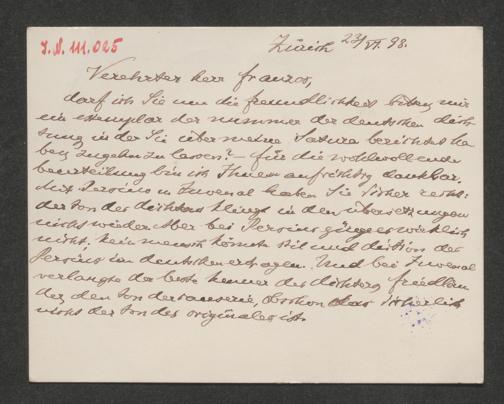 J. N. 111.025
Zürich 23/VI. 98.
Verehrter herr franzos,
darf ich Sie um die freundlichkeit bitten mir
ein exemplar der nummer der deutschen dich-
tung in der Sie über meine Satura berichtet ha-
ben zugehn zu lassen? – für die wohlwollende
beurteilung bin ich Ihnen aufrichtig dankbar.
Mit Persius u Juvenal haben Sie sicher recht:
der ton der dichters klingt in den übersetzungen
nicht wieder. Aber bei Persius gienge es wirklich
nicht: kein mensch könnte stil und diction des
Persius im deutschen ertragen. Und bei Juvenal
verlangte der beste kenner des dichters friedlän-
der den ton der causerie, obschon das sicherlich
nicht der ton des originales ist.